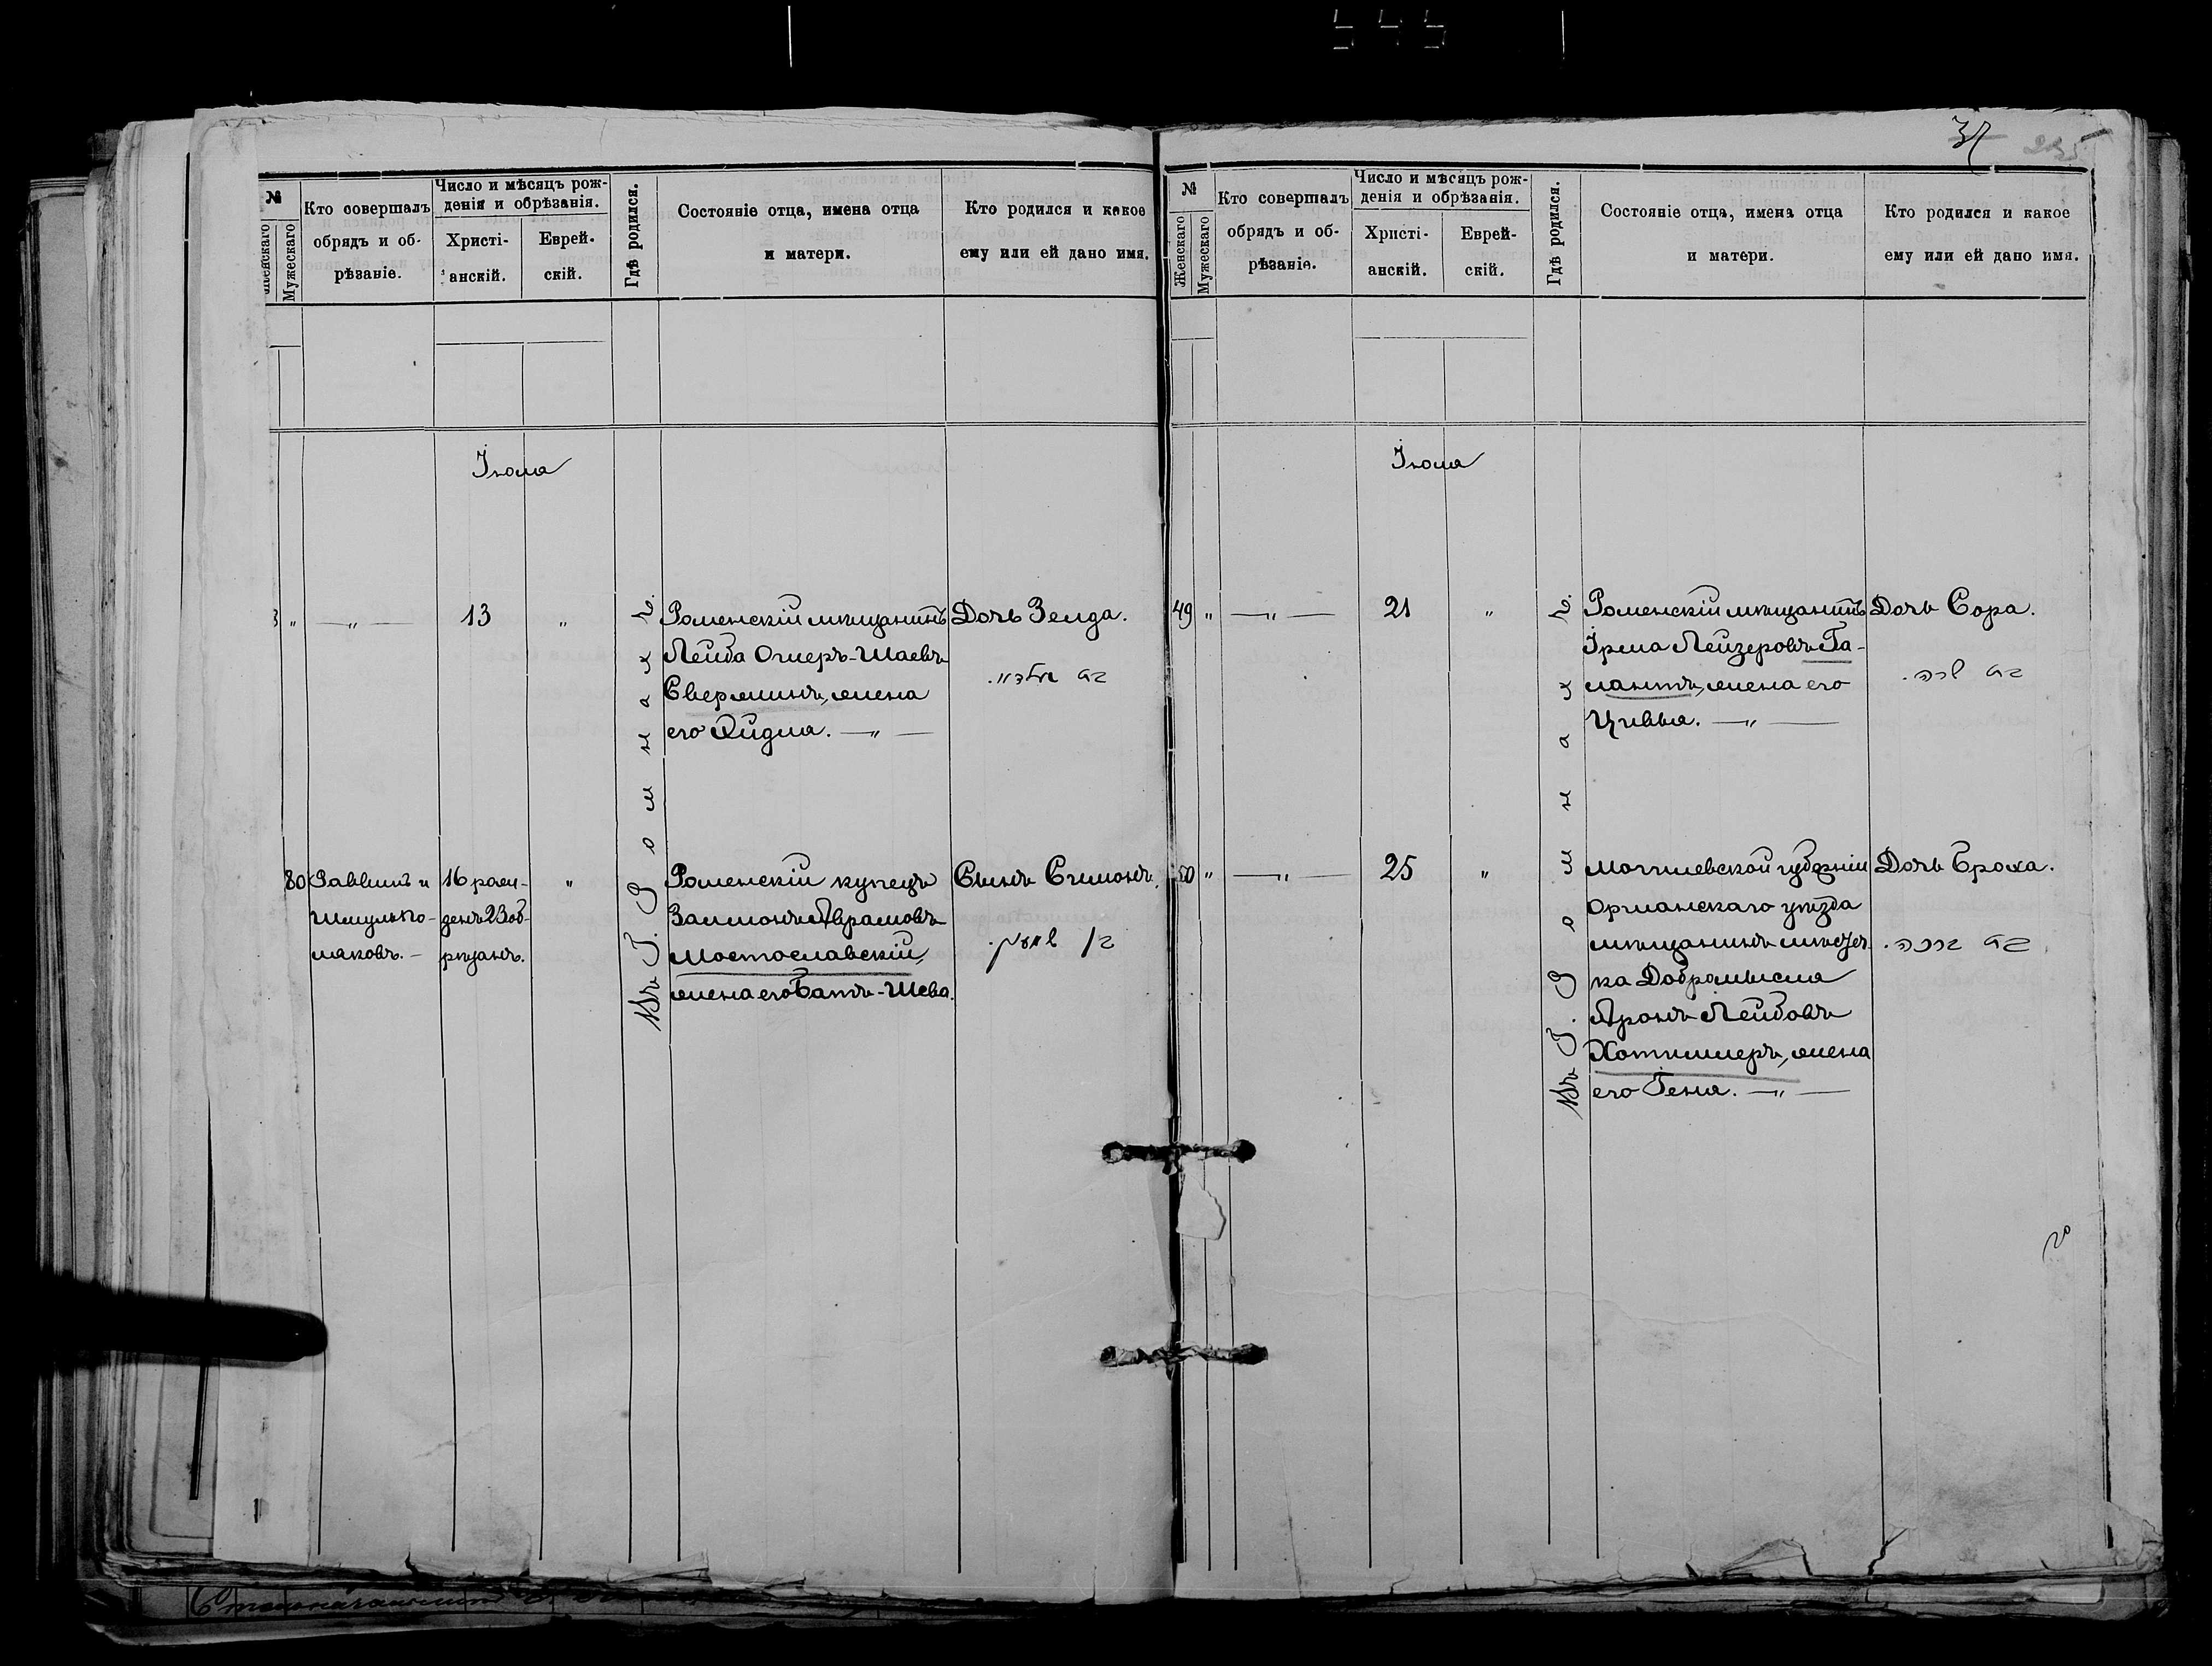 545
37
№
Женскаго
Мужескаго
Кто совершалъ
обрядъ и об-
рѣзаніе.
Число и мѣсяцъ рож-
денія и обрѣзанія.
Христі-
анскій.
Еврей-
скій.
Гдѣ родился.
Состояніе отца, имена отца
и матери.
Кто родился и какое
ему или ей дано имя.
Іюля
„
—„—
13
„
Въ Г. Ромнахъ.
Роменскій мѣщанинъ
Лейба Ошеръ-Шаевъ
Сверлинъ, жена
его Фидля. —„—
Дочь Зелда.
80
Раввинъ и
Шмулъ По-
ляковъ. –
16 рож-
денъ 23 об-
рѣзанъ.
„
Роменскій купецъ
Залмонъ Абрамовъ
Мостославскій,
жена его Батъ-Шева.
Сынъ Симонъ.
בן שמעון.
№
Женскаго
Мужескаго
Кто совершалъ
обрядъ и об-
рѣзаніе.
Число и мѣсяцъ рож-
денія и обрѣзанія.
Христі-
анскій.
Еврей-
скій.
Гдѣ родился.
Состояніе отца, имена отца
и матери.
Кто родился и какое
ему или ей дано имя.
Іюля
49
„
—„—
21
„
Въ Г. Ромнахъ.
Роменскій мѣщанинъ
Ірма Лейзеровъ Га-
лантъ, жена его
Цивья. —„—
Дочь Сора.
בת שרה.
50
„
—„—
25
„
Могилевской губерніи
Оршанскаго уѣзда
мѣщанинъ мѣстеч-
ка Добромысля
Аронъ Лейбовъ
Хотимлеръ, жена
его Геня. —„—
Дочь Броха.
בת ברכה.